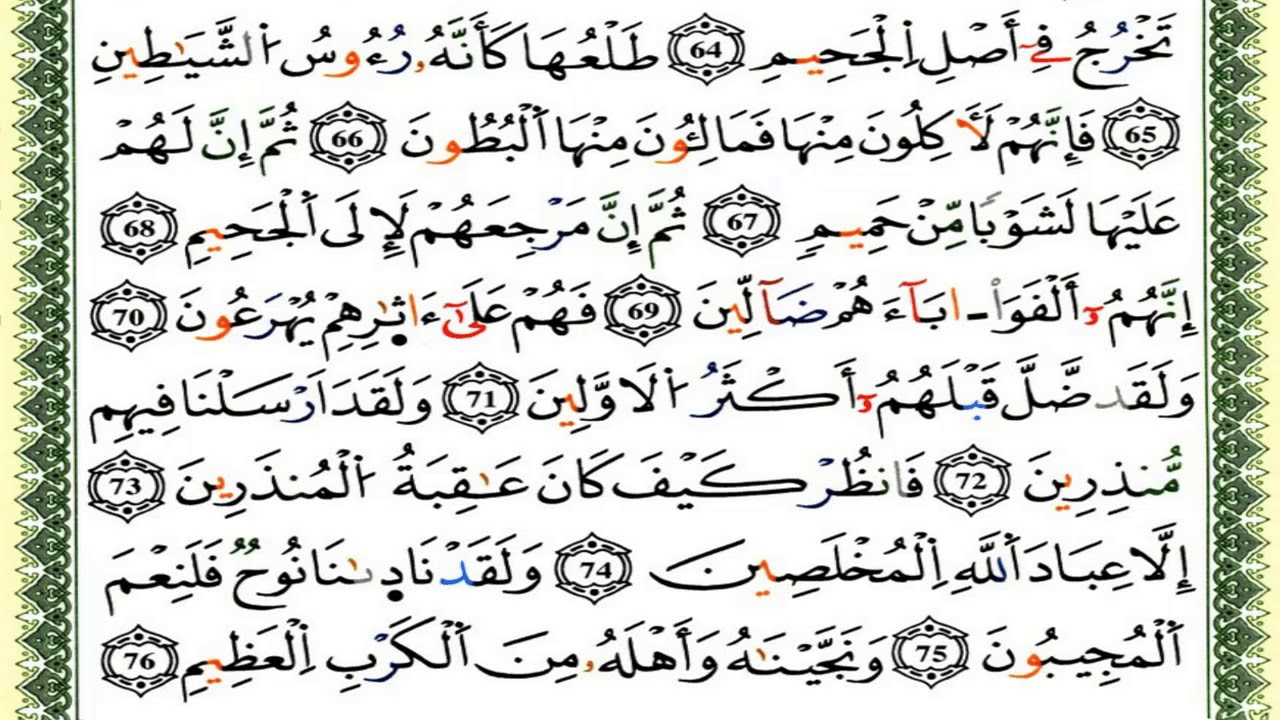 تَخْرُجُ فِےٓ أَصْلِ اِ۬لْجَحِيمِ 64 طَلْعُهَا كَأَنَّهُۥ رُءُوسُ اُ۬لشَّيَٰطِينِ
65 فَإِنَّهُمْ لَأَكِلُونَ مِنْهَا فَمَالِـُٔونَ مِنْهَا اَ۬لْبُطُونَ 66 ثُمَّ إِنَّ لَهُمْ
عَلَيْهَا لَشَوْبًا مِّنْ حَمِيمٍ 67 ثُمَّ إِنَّ مَرْجِعَهُمْ لَإِلَى اَ۬لْجَحِيمِ 68
إِنَّهُمُۥٓ أَلْفَوَاْ ـ ابَآءَ هُمْ ضَآلِّينَ 69 فَهُمْ عَلَىٰٓ ءَاثٰ۪رِهِمْ يُهْرَعُونَ 70
وَلَقَد ضَّلَّ قَبْلَهُمُۥٓ أَكْثَرُ اُ۬لَاوَّلِينَ 71 وَلَقَدَ ارْسَلْنَا فِيهِم
مُّنذِرِينَ 72 فَانظُرْ كَيْفَ كَانَ عَٰقِبَةُ اُ۬لْمُنذَرِينَ 73
إِلَّا عِبَادَ اَ۬للَّهِ اِ۬لْمُخْلَصِينَ 74 وَلَقَدْ نَادٜىٰنَا نُوحٌ فَلَنِعْمَ
اَ۬لْمُجِيبُونَ 75 وَنَجَّيْنَٰهُ وَأَهْلَهُۥ مِنَ اَ۬لْكَرْبِ اِ۬لْعَظِيمِ 76